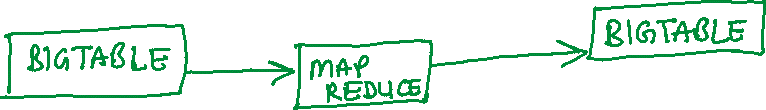 BIGTABLE
MAP
REDUCE
BIGTABLE